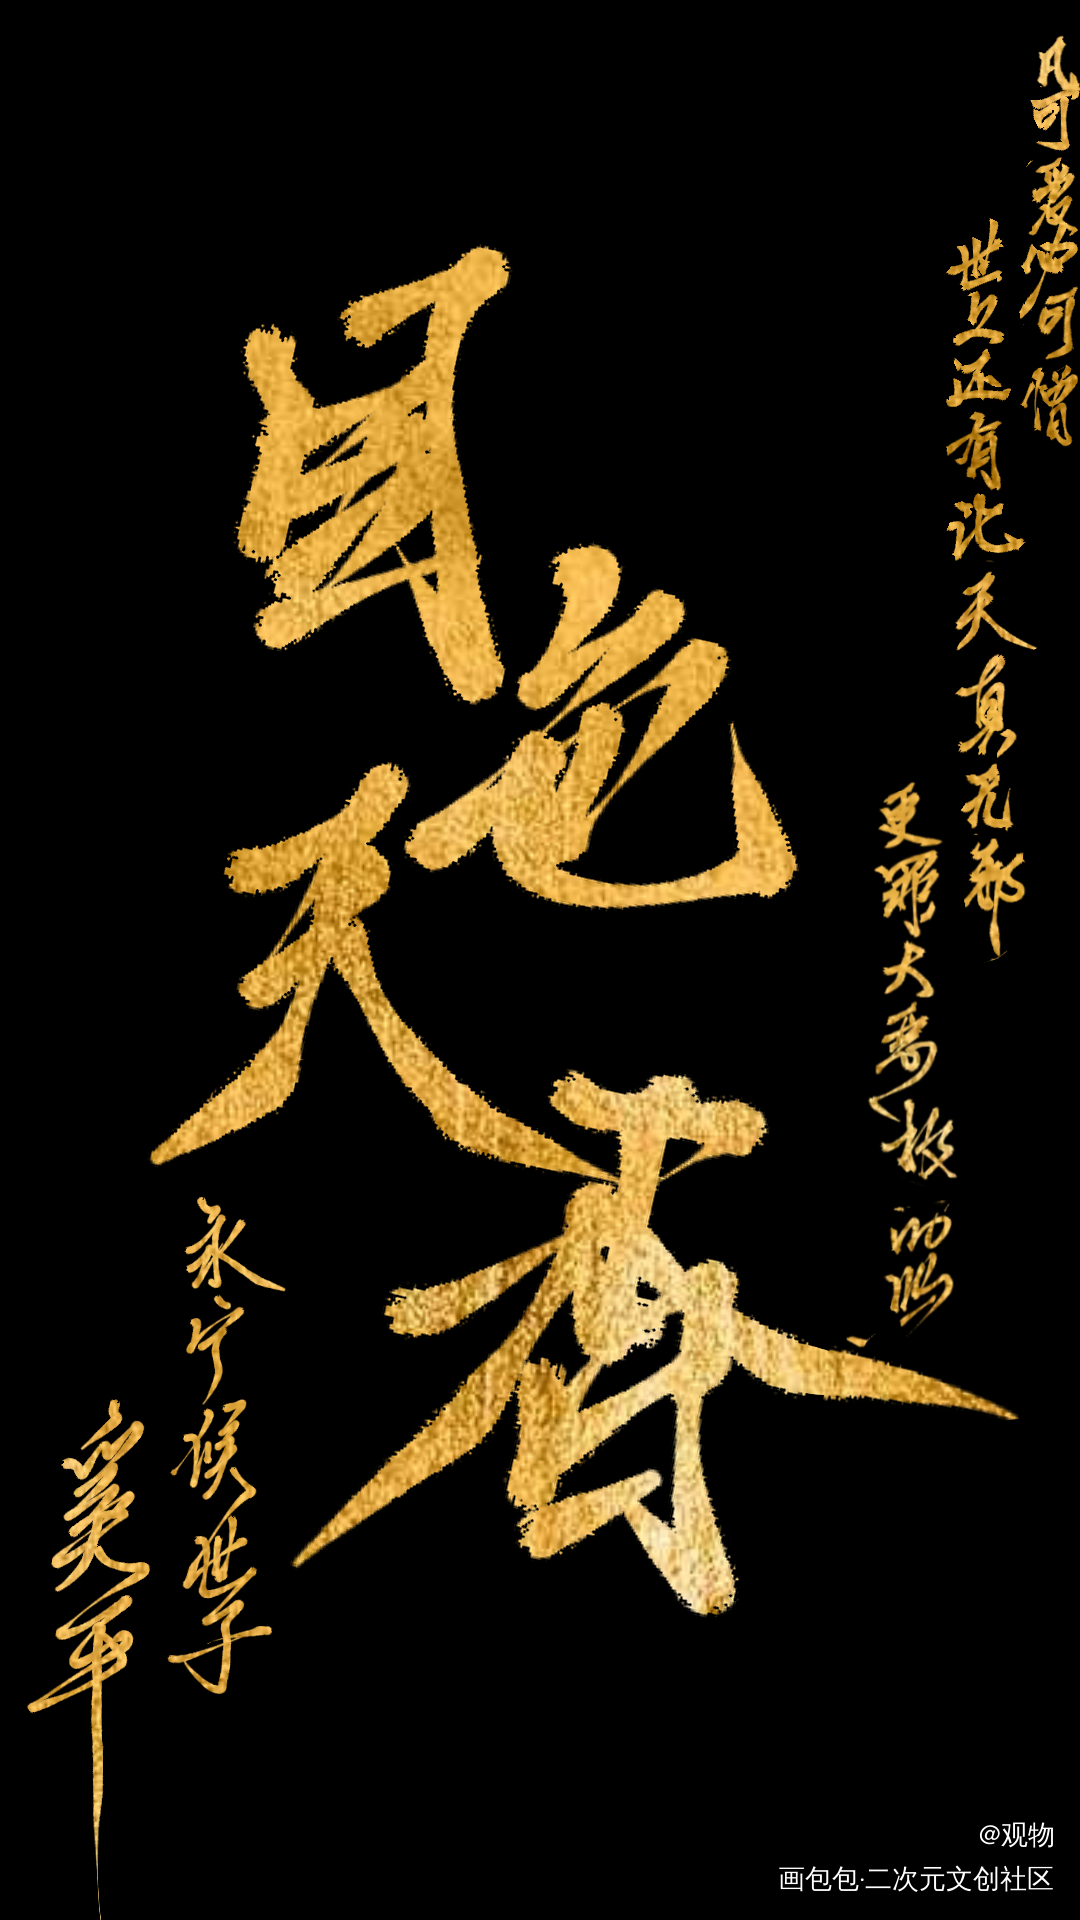 凡可爱必可憎
世上还有比天真无邪
更罪大恶极的吗
国色天香
永宁侯世子
奚平
@观物
画包包·二次元文创社区